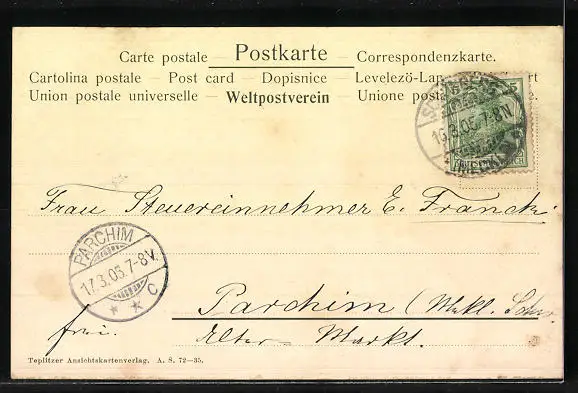 Carte postale – Postkarte – Correspondenzkarte.
Cartolina postale – Post card – Dopisnice – Levelezö-Lap
Union postale universelle – Weltpostverein – Unione posta
5
7-8N
Frau Steuereinnehmer E. Franck
PARCHIM
17.3.05.7-8V.
* * C
Parchim (Mekl. Schw.
frei. Alter Markt.
Teplitzer Ansichtskartenverlag. A. S. 72—35.